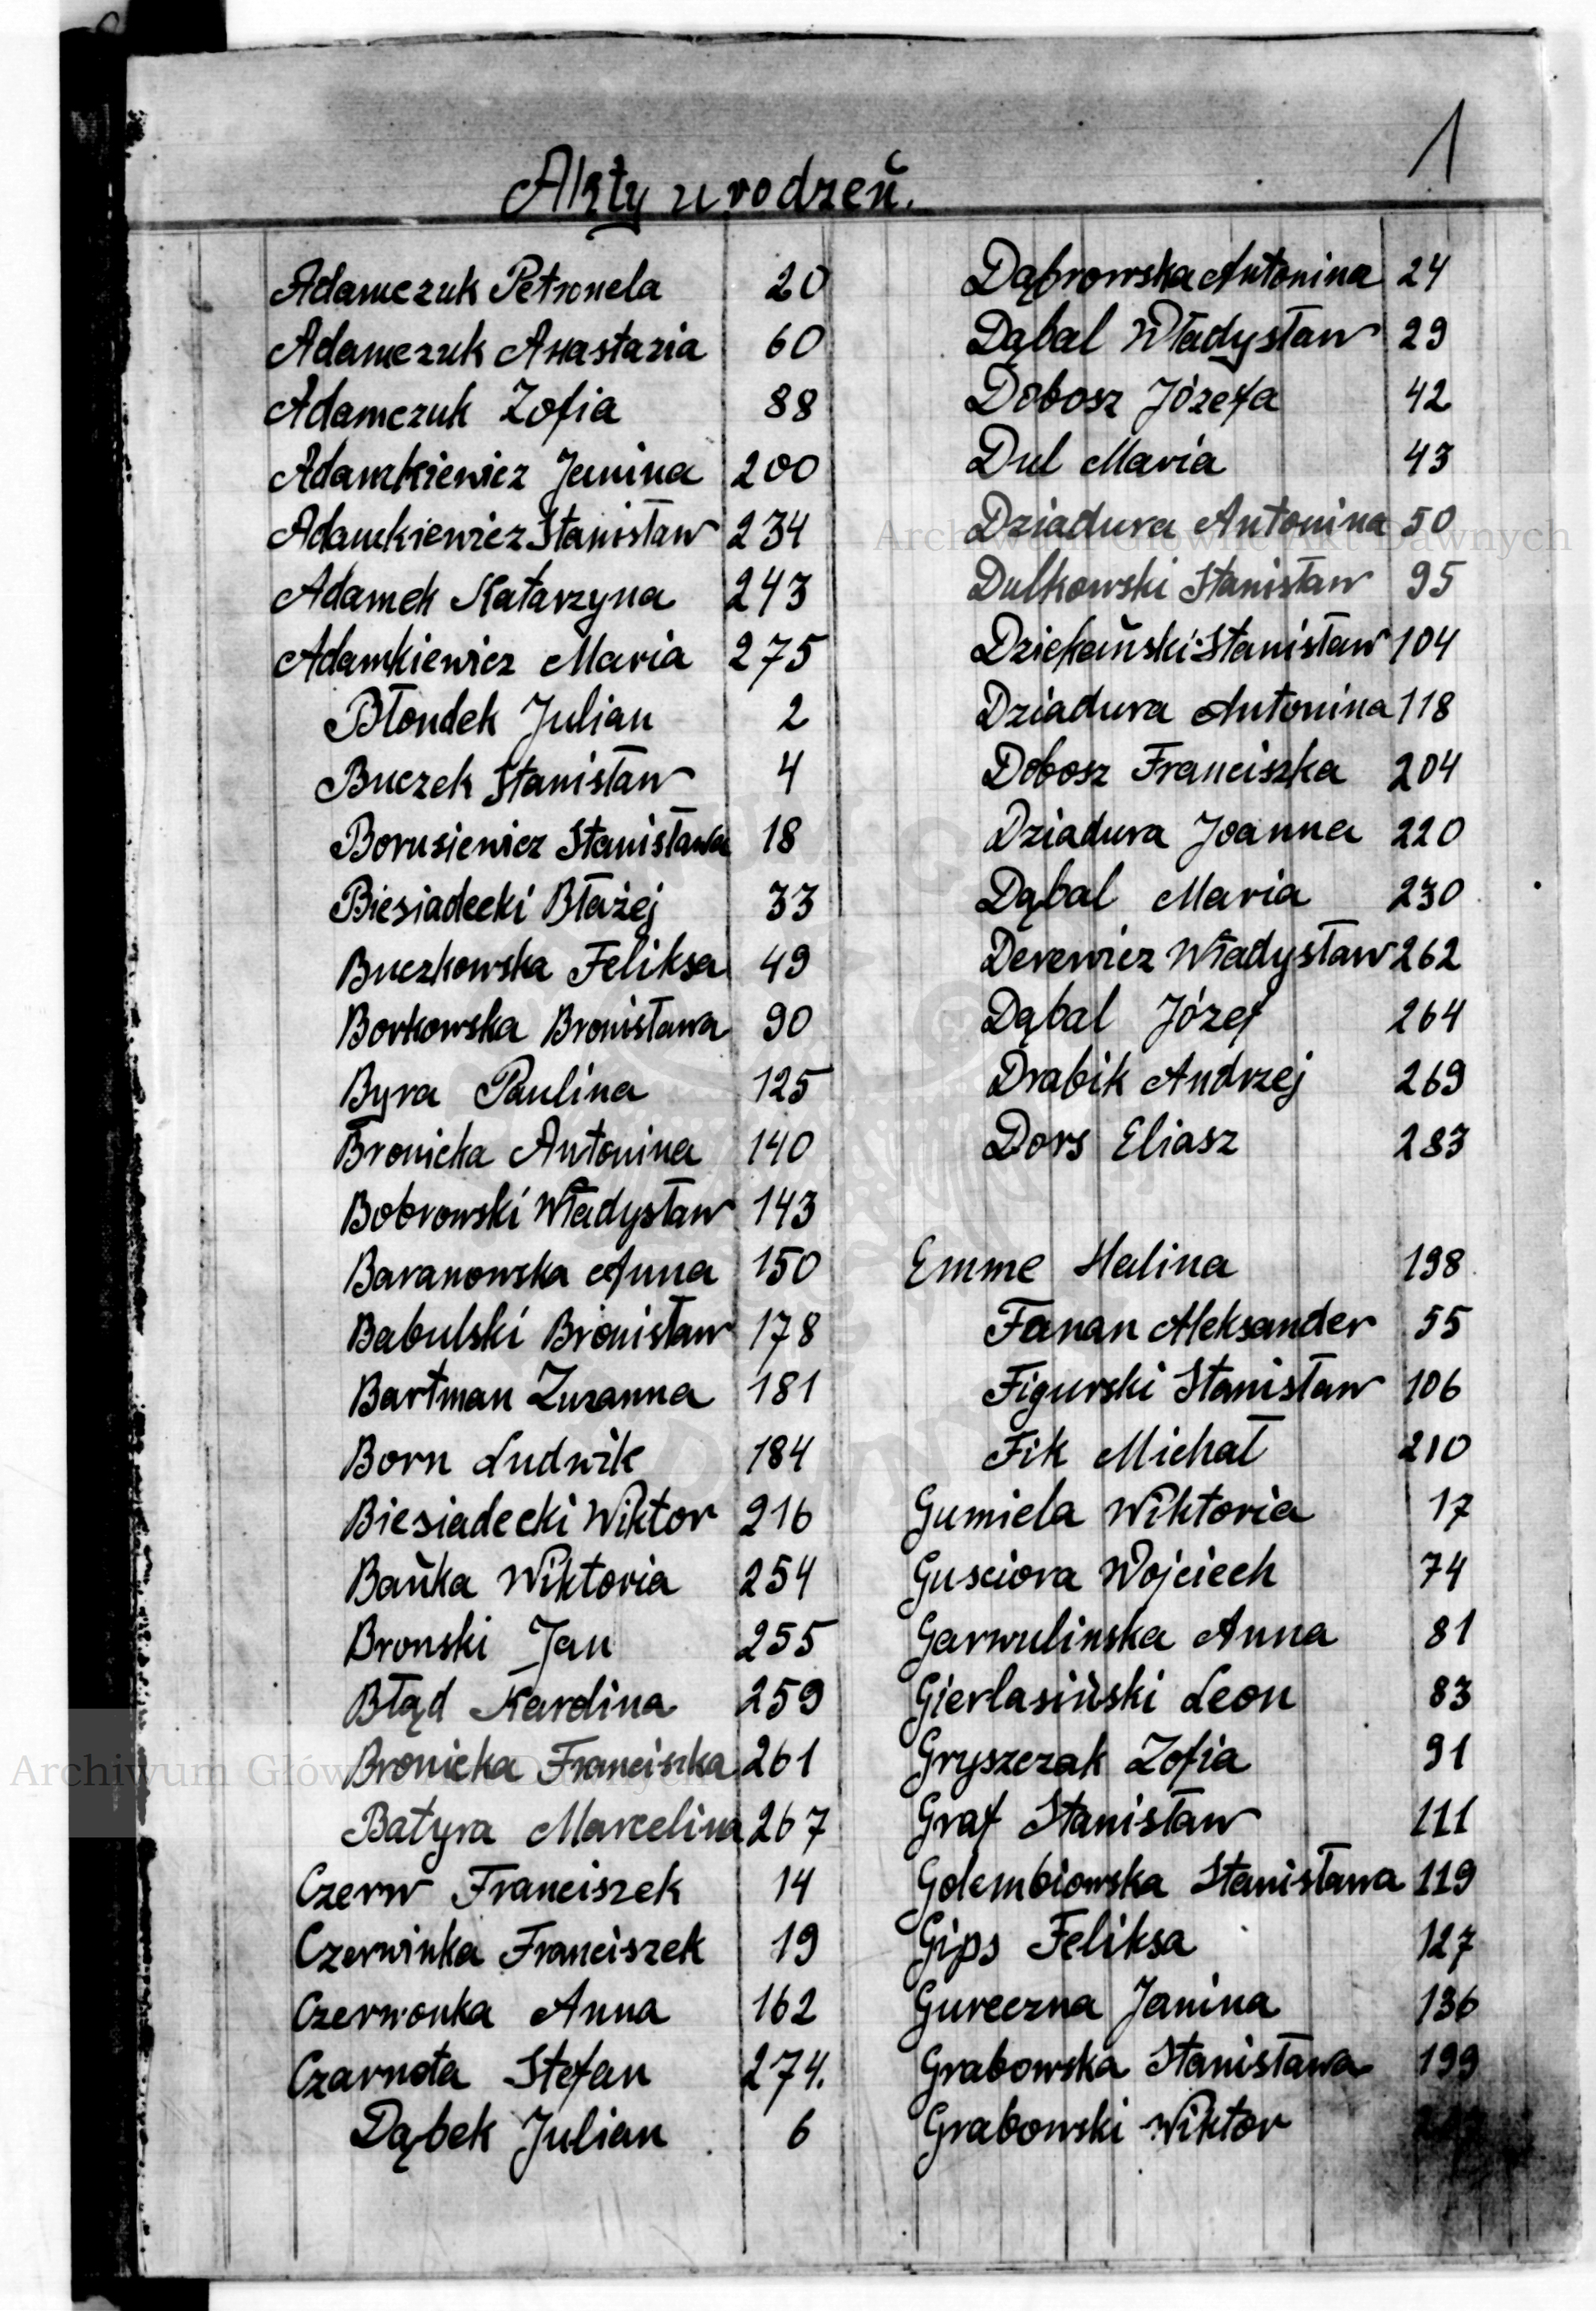 1
Akty urodzeń.
Adamczuk Petronela 20
Adamczuk Anastazia 60
Adamczuk Zofia 88
Adamkiewicz Janina 200
Adamkiewicz Stanisław 234
Adamek Katarzyna 243
Adamkiewicz Maria 275
Błondek Julian 2
Buczek Stanisław 4
Borusiewicz Stanisława 18
Biesiadecki Błażej 33
Buczkowska Feliksa 49
Borkowska Bronisława 90
Byra Paulina 125
Bronicka Antonina 140
Bobrowski Władysław 143
Baranowska Anna 150
Babulski Bronisław 178
Bartman Zuzanna 181
Born Ludwik 184
Biesiadecki Wiktor 216
Bańka Wiktoria 254
Bronski Jan 255
Błąd Karolina 259
Bronicka Franciszka 261
Batyra Marcelina 267
Czerw Franciszek 14
Czerwinka Franciszek 19
Czerwonka Anna 162
Czarnota Stefan 274.
Dąbek Julian 6
Dąbrowska Antonina 24
Dąbal Władysław 29
Dobosz Józefa 42
Dul Maria 43
Dziadura Antonina 50
Dulkowski Stanisław 95
Dziekański Stanisław 104
Dziadura Antonina 118
Dobosz Franciszka 204
Dziadura Joanna 220
Dąbal Maria 230
Derewicz Władysław 262
Dąbal Józef 264
Drabik Andrzej 269
Dors Eliasz 283
Emme Halina 198
Fanan Aleksander 55
Figurski Stanisław 106
Fik Michał 210
Gumiela Wiktoria 17
Gusciora Wojciech 74
Garwulinska Anna 81
Gierlasiński Leon 83
Gryszczak Zofia 91
Graf Stanisław 111
Golembiowska Stanisława 119
Gips Feliksa 127
Gureczna Janina 136
Grabowska Stanisława 199
Grabowski Wiktor
Archiwum Główne Akt Dawnych
Archiwum Główne Akt Dawnych